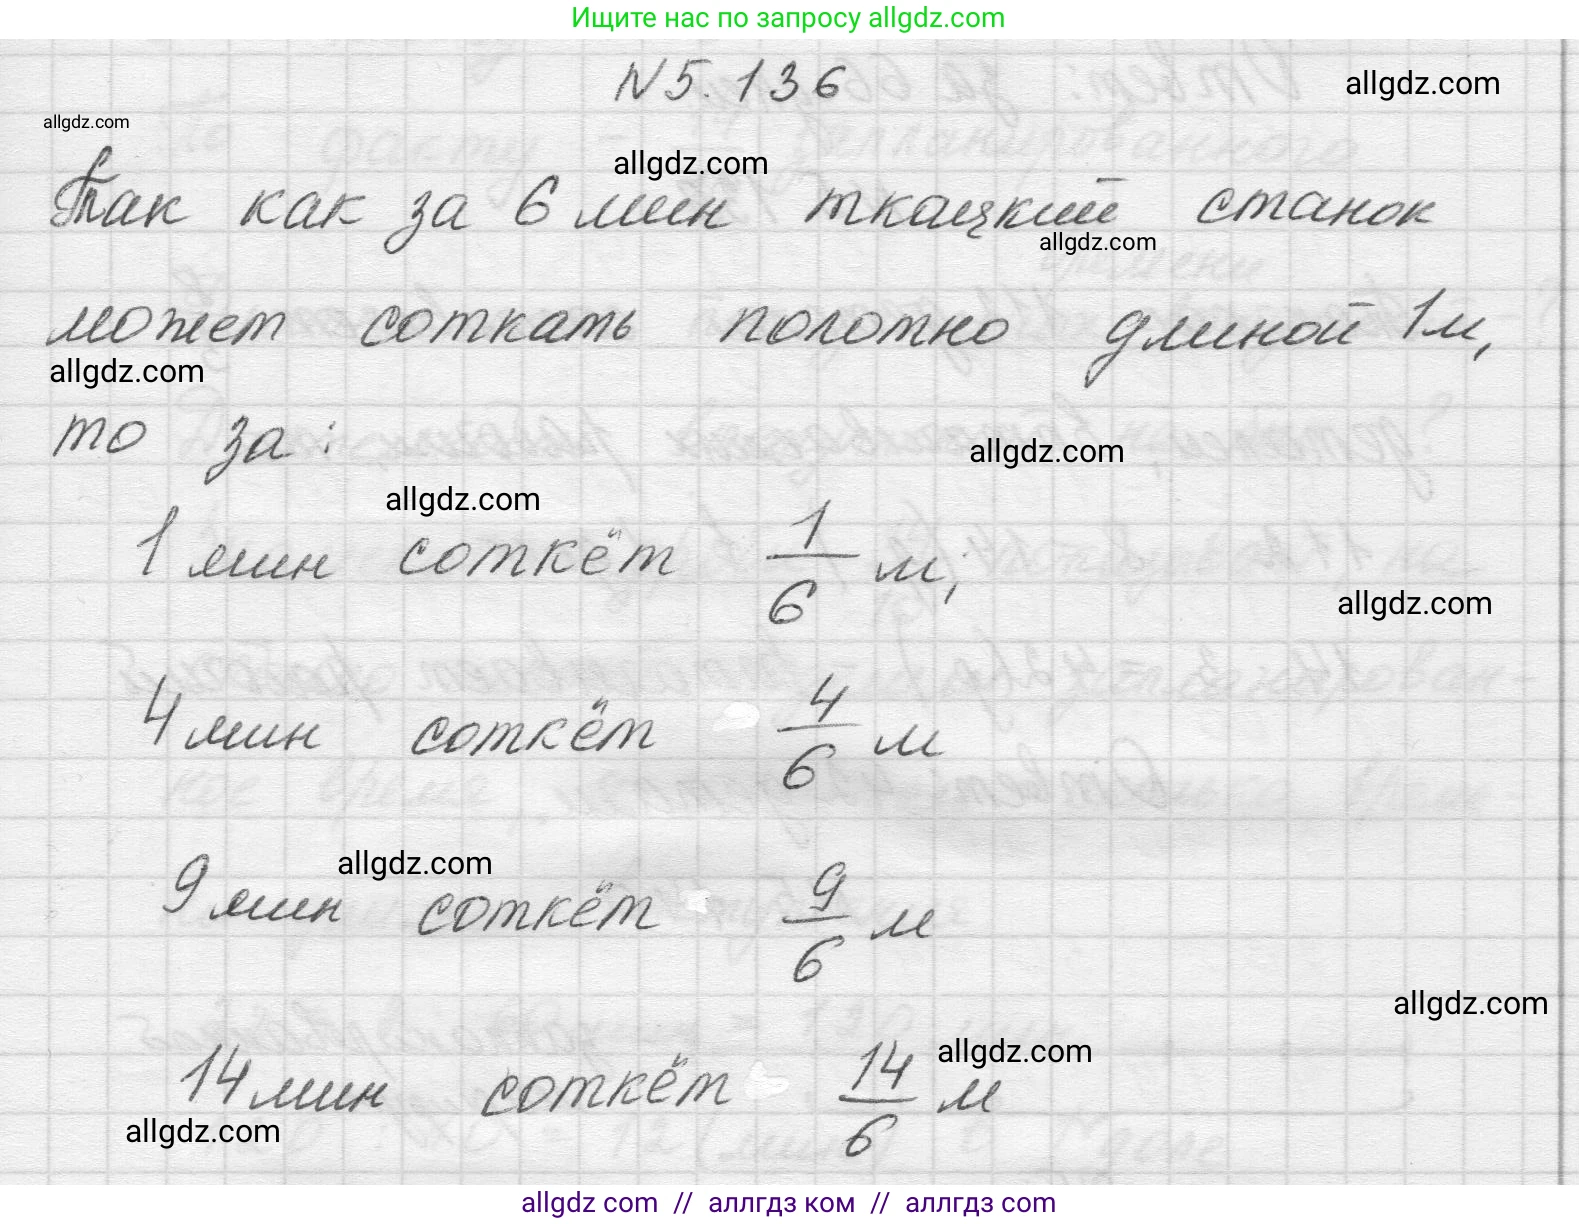 Ищите нас по запросу allgdz.com
N 5.136
allgdz.com
allgdz.com
allgdz.com
Так как за 6 мин ткацкий станок
allgdz.com
может соткать полотно длиной 1м,
allgdz.com
то за:
allgdz.com
allgdz.com
1 мин соткёт 1/6 м;
allgdz.com
4 мин соткёт 4/6 м
allgdz.com
9 мин соткёт 9/6 м
allgdz.com
allgdz.com
14 мин соткёт 14/6 м
allgdz.com
allgdz com // аллгдз ком // аллгдз com